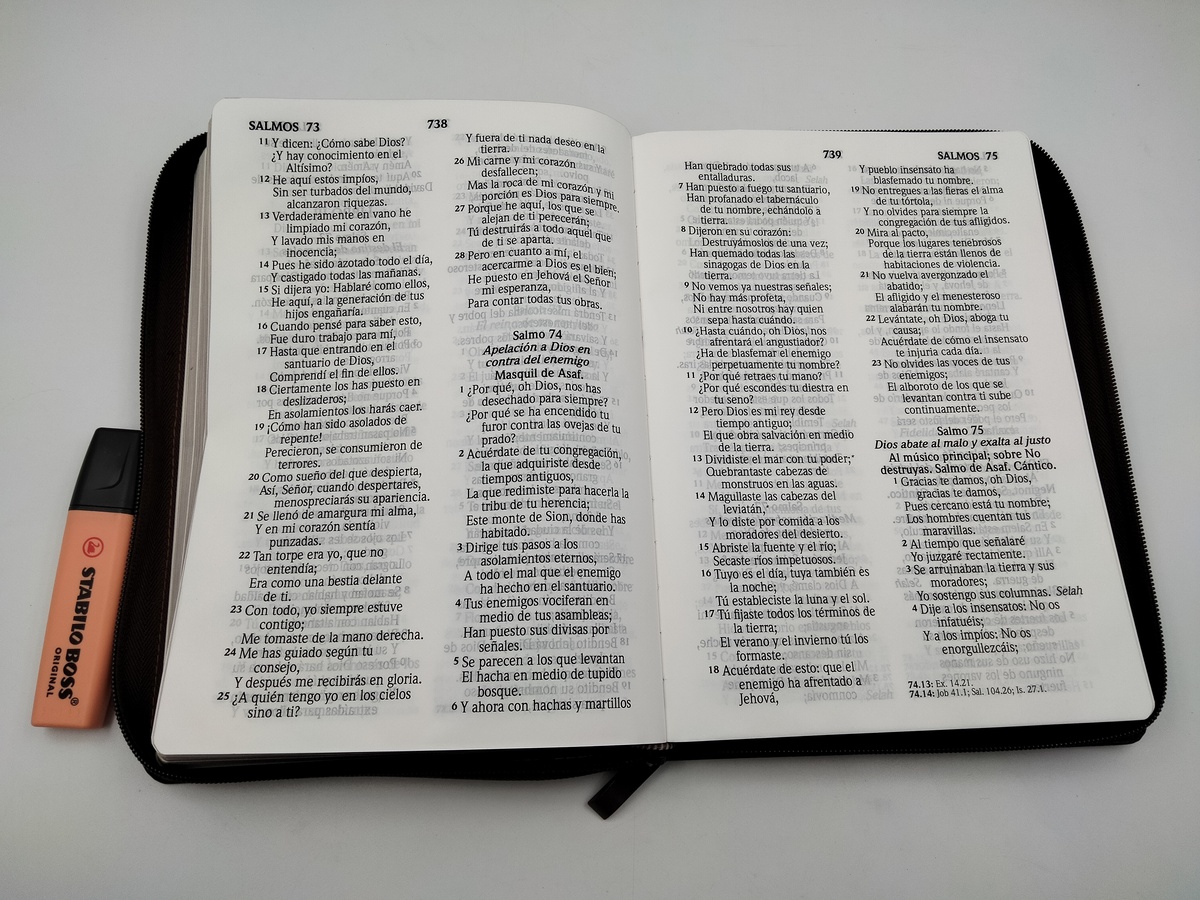 SALMOS 73
738
11 Y dicen: ¿Cómo sabe Dios?
¿Y hay conocimiento en el
Altísimo?
12 He aquí estos impíos,
Sin ser turbados del mundo,
alcanzaron riquezas.
13 Verdaderamente en vano he
limpiado mi corazón,
Y lavado mis manos en
inocencia;
14 Pues he sido azotado todo el día,
Y castigado todas las mañanas.
15 Si dijera yo: Hablaré como ellos,
He aquí, a la generación de tus
hijos engañaría.
16 Cuando pensé para saber esto,
Fue duro trabajo para mí,
17 Hasta que entrando en el
santuario de Dios,
Comprendí el fin de ellos.
18 Ciertamente los has puesto en
deslizaderos;
En asolamientos los harás caer.
19 ¡Cómo han sido asolados de
repente!
Perecieron, se consumieron de
terrores.
20 Como sueño del que despierta,
Así, Señor, cuando despertares,
menospreciarás su apariencia.
21 Se llenó de amargura mi alma,
Y en mi corazón sentía
punzadas.
22 Tan torpe era yo, que no
entendía;
Era como una bestia delante
de ti.
23 Con todo, yo siempre estuve
contigo;
Me tomaste de la mano derecha.
24 Me has guiado según tu
consejo,
Y después me recibirás en gloria.
25 ¿A quién tengo yo en los cielos
sino a ti?
Y fuera de ti nada deseo en la
tierra.
26 Mi carne y mi corazón
desfallecen;
Mas la roca de mi corazón y mi
porción es Dios para siempre.
27 Porque he aquí, los que se
alejan de ti perecerán;
Tú destruirás a todo aquel que
de ti se aparta.
28 Pero en cuanto a mí, el
acercarme a Dios es el bien;
He puesto en Jehová el Señor
mi esperanza,
Para contar todas tus obras.
Salmo 74
Apelación a Dios en
contra del enemigo
Masquil de Asaf.
1 ¿Por qué, oh Dios, nos has
desechado para siempre?
¿Por qué se ha encendido tu
furor contra las ovejas de tu
prado?
2 Acuérdate de tu congregación,
la que adquiriste desde
tiempos antiguos,
La que redimiste para hacerla la
tribu de tu herencia;
Este monte de Sion, donde has
habitado.
3 Dirige tus pasos a los
asolamientos eternos,
A todo el mal que el enemigo
ha hecho en el santuario.
4 Tus enemigos vociferan en
medio de tus asambleas;
Han puesto sus divisas por
señales.
5 Se parecen a los que levantan
El hacha en medio de tupido
bosque.
6 Y ahora con hachas y martillos
739
SALMOS 75
Han quebrado todas sus
entalladuras.
7 Han puesto a fuego tu santuario,
Han profanado el tabernáculo
de tu nombre, echándolo a
tierra.
8 Dijeron en su corazón:
Destruyámoslos de una vez;
Han quemado todas las
sinagogas de Dios en la
tierra.
9 No vemos ya nuestras señales;
No hay más profeta,
Ni entre nosotros hay quien
sepa hasta cuándo.
10 ¿Hasta cuándo, oh Dios, nos
afrentará el angustiador?
¿Ha de blasfemar el enemigo
perpetuamente tu nombre?
11 ¿Por qué retraes tu mano?
¿Por qué escondes tu diestra en
tu seno?
12 Pero Dios es mi rey desde
tiempo antiguo;
El que obra salvación en medio
de la tierra.
13 Dividiste el mar con tu poder;*
Quebrantaste cabezas de
monstruos en las aguas.
14 Magullaste las cabezas del
leviatán,*
Y lo diste por comida a los
moradores del desierto.
15 Abriste la fuente y el río;
Secaste ríos impetuosos.
16 Tuyo es el día, tuya también es
la noche;
Tú estableciste la luna y el sol.
17 Tú fijaste todos los términos de
la tierra;
El verano y el invierno tú los
formaste.
18 Acuérdate de esto: que el
enemigo ha afrentado a
Jehová,
Y pueblo insensato ha
blasfemado tu nombre.
19 No entregues a las fieras el alma
de tu tórtola,
Y no olvides para siempre la
congregación de tus afligidos.
20 Mira al pacto,
Porque los lugares tenebrosos
de la tierra están llenos de
habitaciones de violencia.
21 No vuelva avergonzado el
abatido;
El afligido y el menesteroso
alabarán tu nombre.
22 Levántate, oh Dios, aboga tu
causa;
Acuérdate de cómo el insensato
te injuria cada día.
23 No olvides las voces de tus
enemigos;
El alboroto de los que se
levantan contra ti sube
continuamente.
Salmo 75
Dios abate al malo y exalta al justo
Al músico principal; sobre No
destruyas. Salmo de Asaf. Cántico.
1 Gracias te damos, oh Dios,
gracias te damos,
Pues cercano está tu nombre;
Los hombres cuentan tus
maravillas.
2 Al tiempo que señalaré
Yo juzgaré rectamente.
3 Se arruinaban la tierra y sus
moradores;
Yo sostengo sus columnas. Selah
4 Dije a los insensatos: No os
infatuéis;
Y a los impíos: No os
enorgullezcáis;
74.13: Ex. 14.21.
74.14: Job 41.1; Sal. 104.26; Is. 27.1.
STABILO BOSS®
ORIGINAL